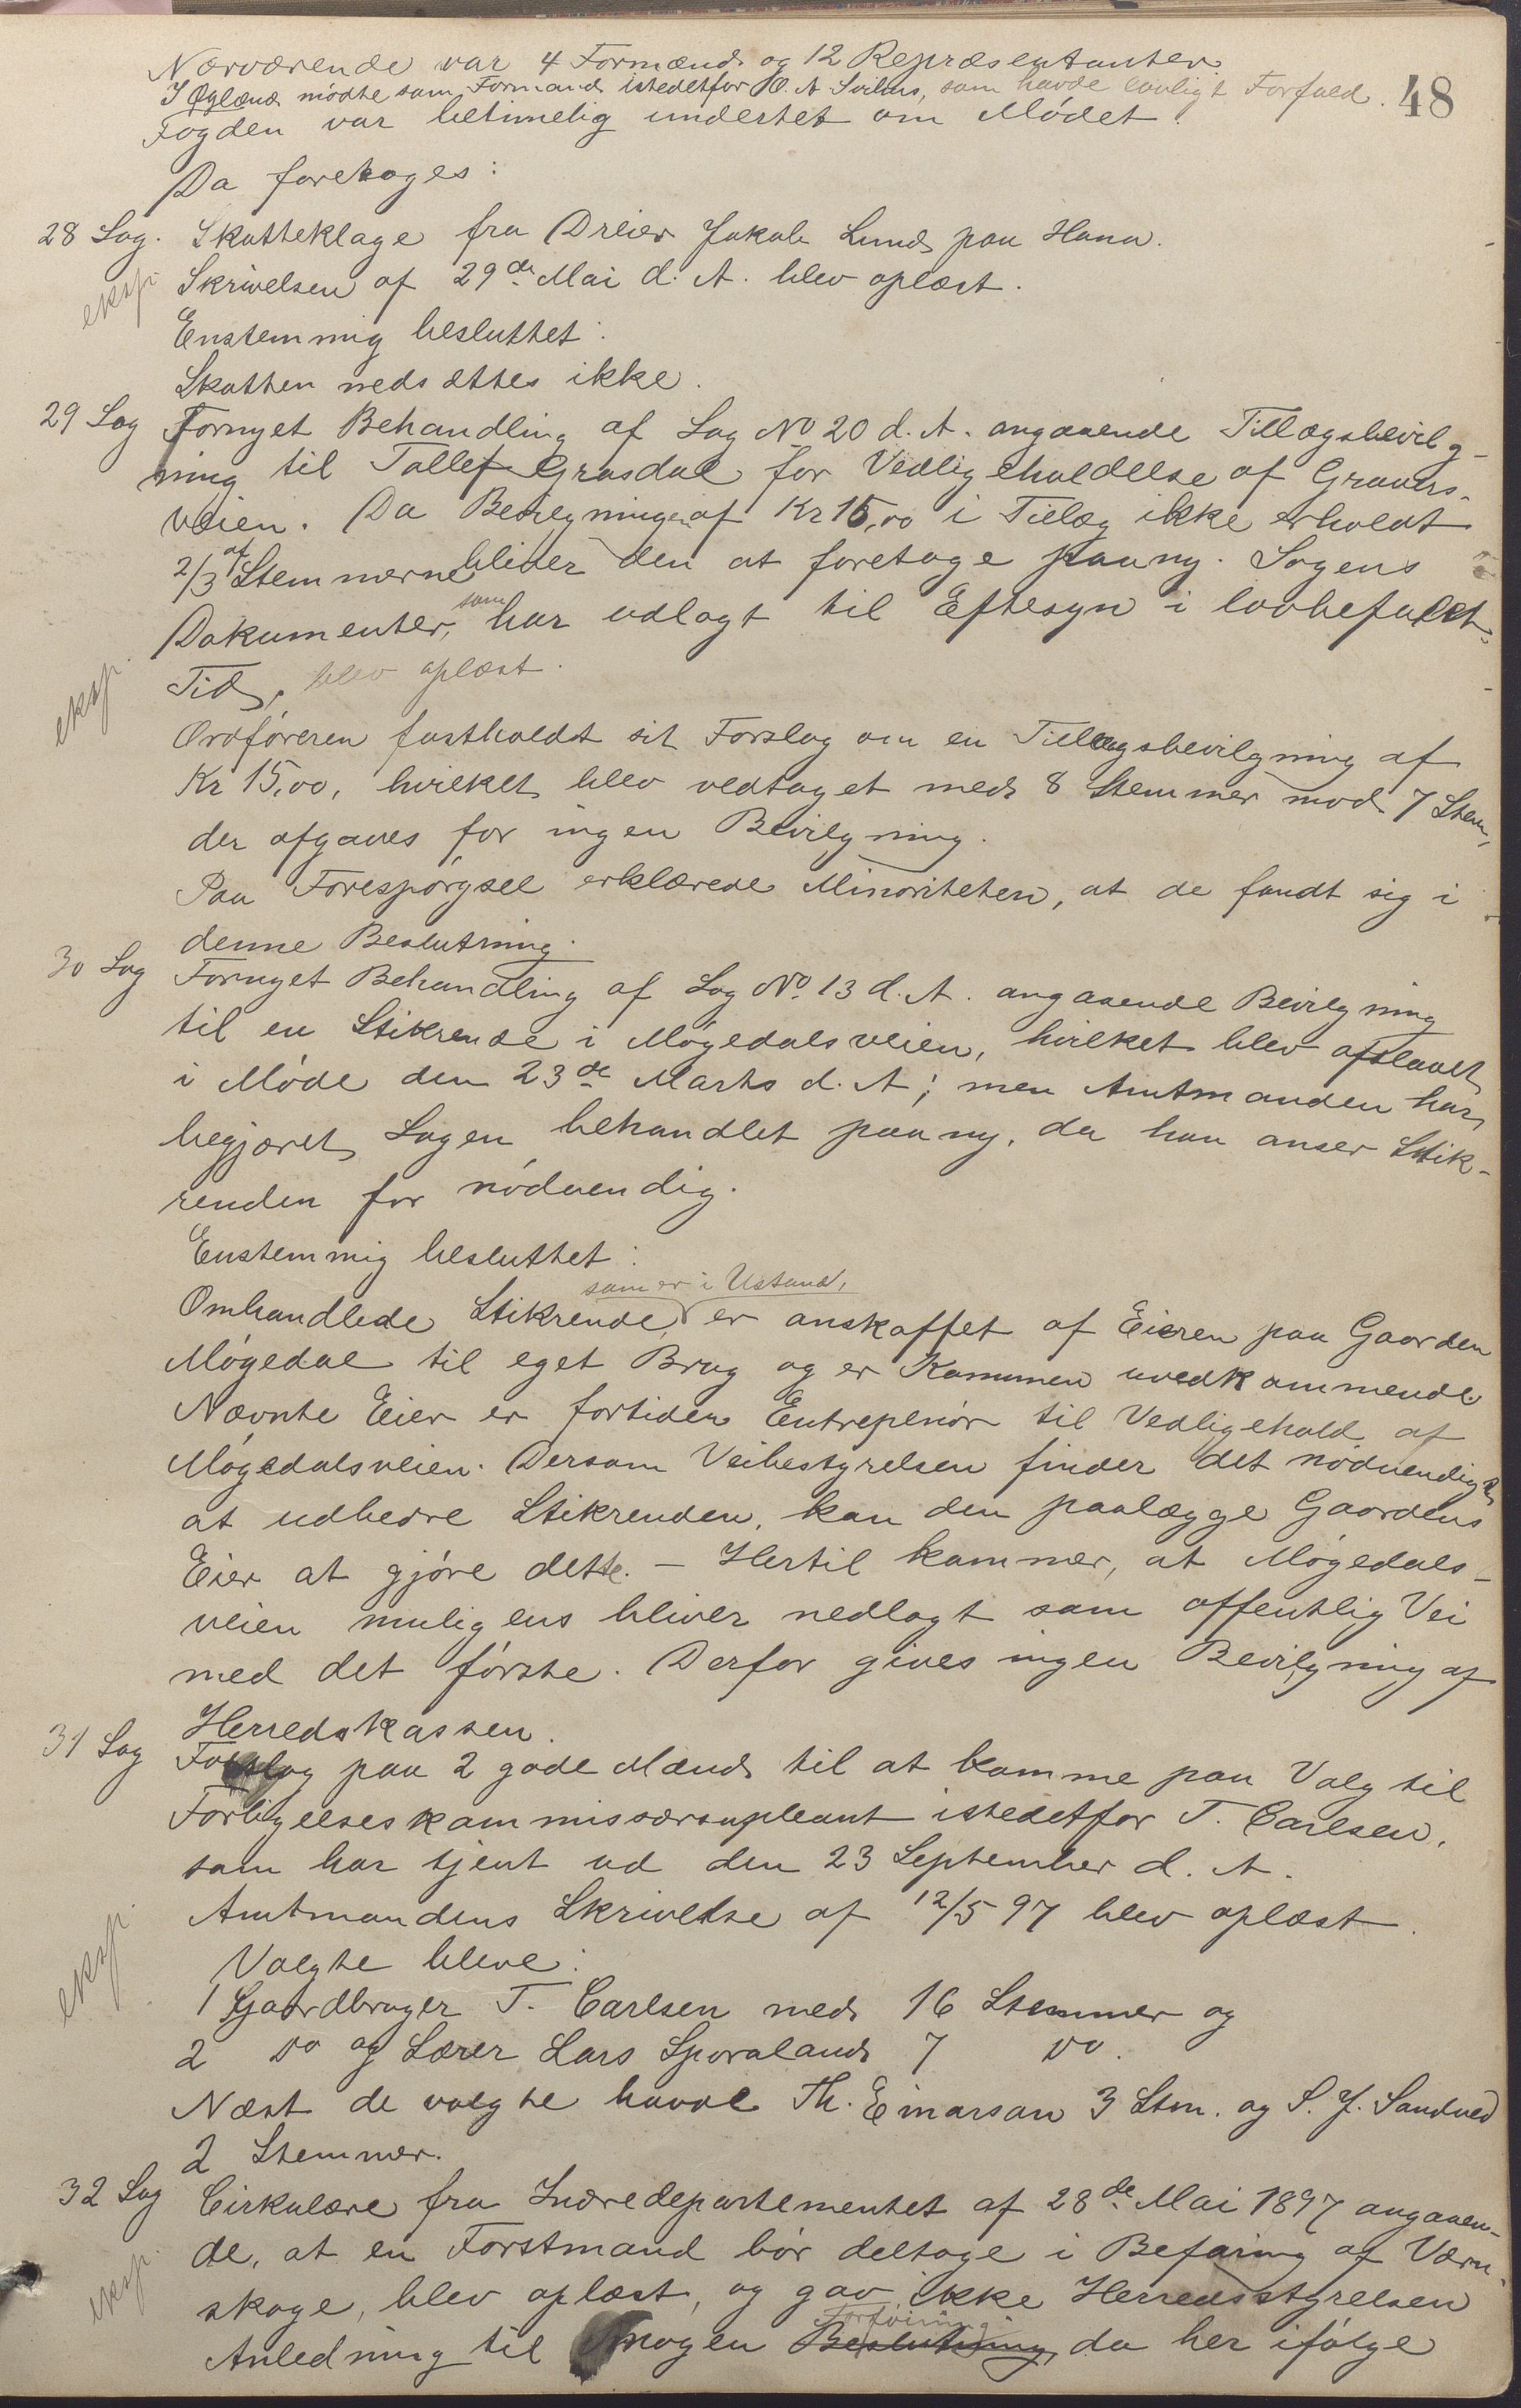 48
Nærværende var 4 Formænd og 12 Repræsentanter.
I Øglænd mødte som Formand istedetfor O. A. Svihus, som havde lovligt Forfald.
Fogden var betimelig undertet om Mødet.
Da foretoges:
28 Sag. Skatteklage fra Dreier Jakob Lund paa Hana.
eksp. Skrivelsen af 29de Mai d. A. blev oplæst.
Enstemmig besluttet:
Skatten nedsættes ikke.
29 Sag Fornyet Behandling af Sag No 20 d. A. angaaende Tillægsbevilg-
ning til Tollef Grasdal for Vedligeholdelse af Gravars-
veien. Da Bevilgningen af Kr 15,00 i Tillæg ikke erholdt
2/3 af Stemmerne bliver den at foretage paany. Sagens
Dokumenter, som har udlagt til Eftesyn i lovbefalet
eksp. Tid, blev oplæst.
Ordføreren fastholdt sit Forslag om en Tillægsbevilgning af
Kr 15,00, hvilket blev vedtaget med 8 Stemmer mod 7 Stem,
der afgaves for ingen Bevilgning.
Paa Forespørgsel erklærede Minoriteten, at de fandt sig i
denne Beslutning.
30 Sag Fornyet Behandling af Sag No. 13 d. A. angaaende Bevilgning
til en Stikrende i Møgedalsveien, hvilket blev afslaaet
i Møde den 23de Marts d. A; men Amtmanden har
begjæret Sagen behandlet paany, da han anser Stik-
renden for nødvendig.
Enstemmig besluttet:
Omhandlede Stikrende, som er i Ustand, er anskaffet af Eieren paa Gaarden
Møgedal til eget Brug og er Kommunen uvedkommende
Nævnte Eier er fortiden Entreprenør til Vedligehold af
Møgedalsveien. Dersom Veibestyrelsen finder det nødvendigt
at udbedre Stikrenden, kan den paalægge Gaardens
Eier at gjøre dette. — Hertil kommer, at Møgedals-
veien muligens bliver nedlagt som offentlig Vei
med det første. Derfor gives ingen Bevilgning af
Herredskassen.
31 Sag Forslag paa 2 gode Mænd til at komme paa Valg til
Forligelseskommissærsupleant istedetfor T. Carlsen,
som har tjent ud den 23 September d. A.
Amtmandens Skrivelse af 12/5 97 blev oplæst.
eksp. Valgte bleve:
1 Gaardbruger T. Carlsen med 16 Stemmer og
2 Do og Lærer Lars Sporaland 7 Do.
Næst de valgte havde Th. Einarson 3 Stm. og S. J. Sandved
2 Stemmer.
32 Sag Cirkulære fra Indredepartementet af 28de Mai 1897 angaaen-
eksp. de, at en Forstmand bør deltage i Befaring af Værn-
skoge, blev oplæst, og gav ikke Herredsstyrelsen
Anledning til nogen Beslutning Forføining, da her ifølge